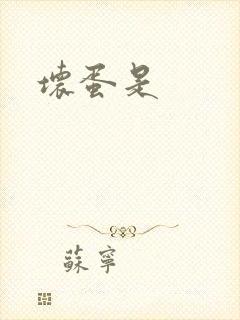 壞蛋是
蘇寧